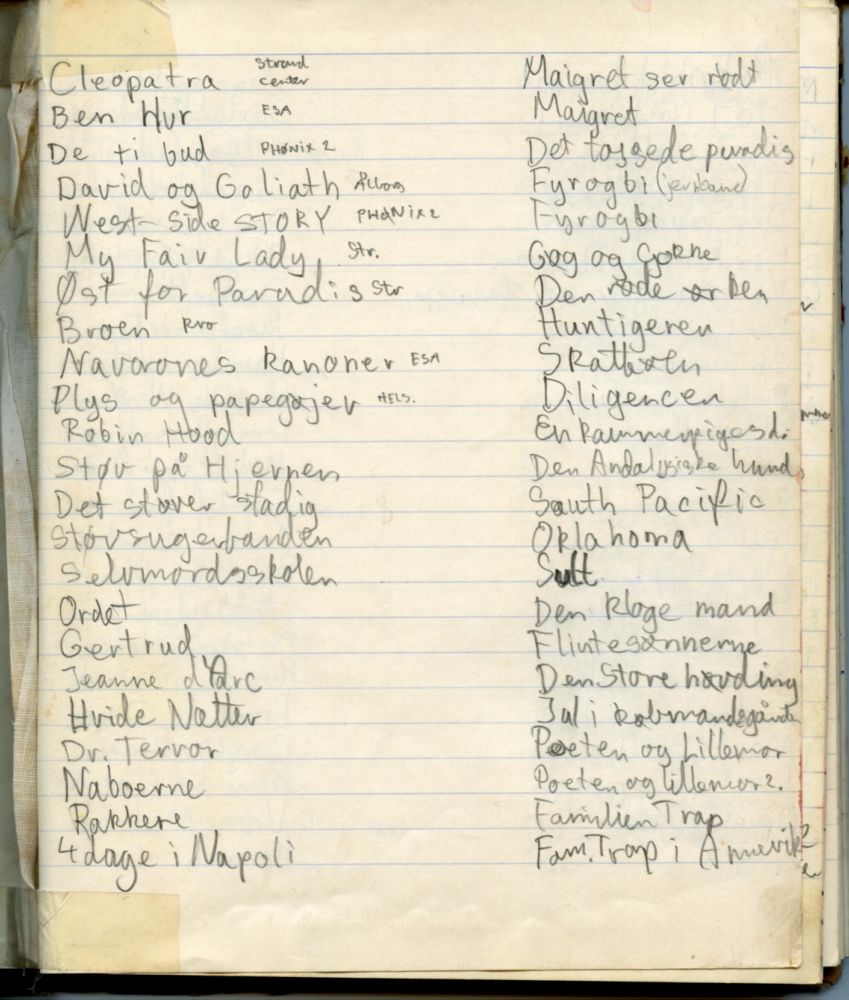 Cleopatra Strand center
Ben Hur ESA
De ti bud PHØNIX 2
David og Goliath Ålborg
West Side STORY PHØNIX 2
My Fair Lady Str.
Øst for Paradis Str
Broen Kro
Navarones kanoner ESA
Plys og papegøjer HELS.
Robin Hood
Støv på Hjernen
Det støver stadig
Støvsugerbanden
Selvmordsskolen
Ordet
Gertrud
Jeanne d'Arc
Hvide Nætter
Dr. Terror
Naboerne
Rakkere
4 dage i Napoli
Maigret ser rødt
Maigret
Det tossede paradis
Fyrogbi
Fyrogbi
Gøg og Gokke
Den røde ørken
Huntigeren
Skatteøen
Diligencen
En kammerpiges d.
Den Andalusiske hund
South Pacific
Oklahoma
Sult
Den kloge mand
Flintesønnerne
Den Store høvding
Jul i købmandsgården
Poeten og Lillemor
Poeten og Lillemor 2.
Familien Trap
Fam. Trap i Amerika